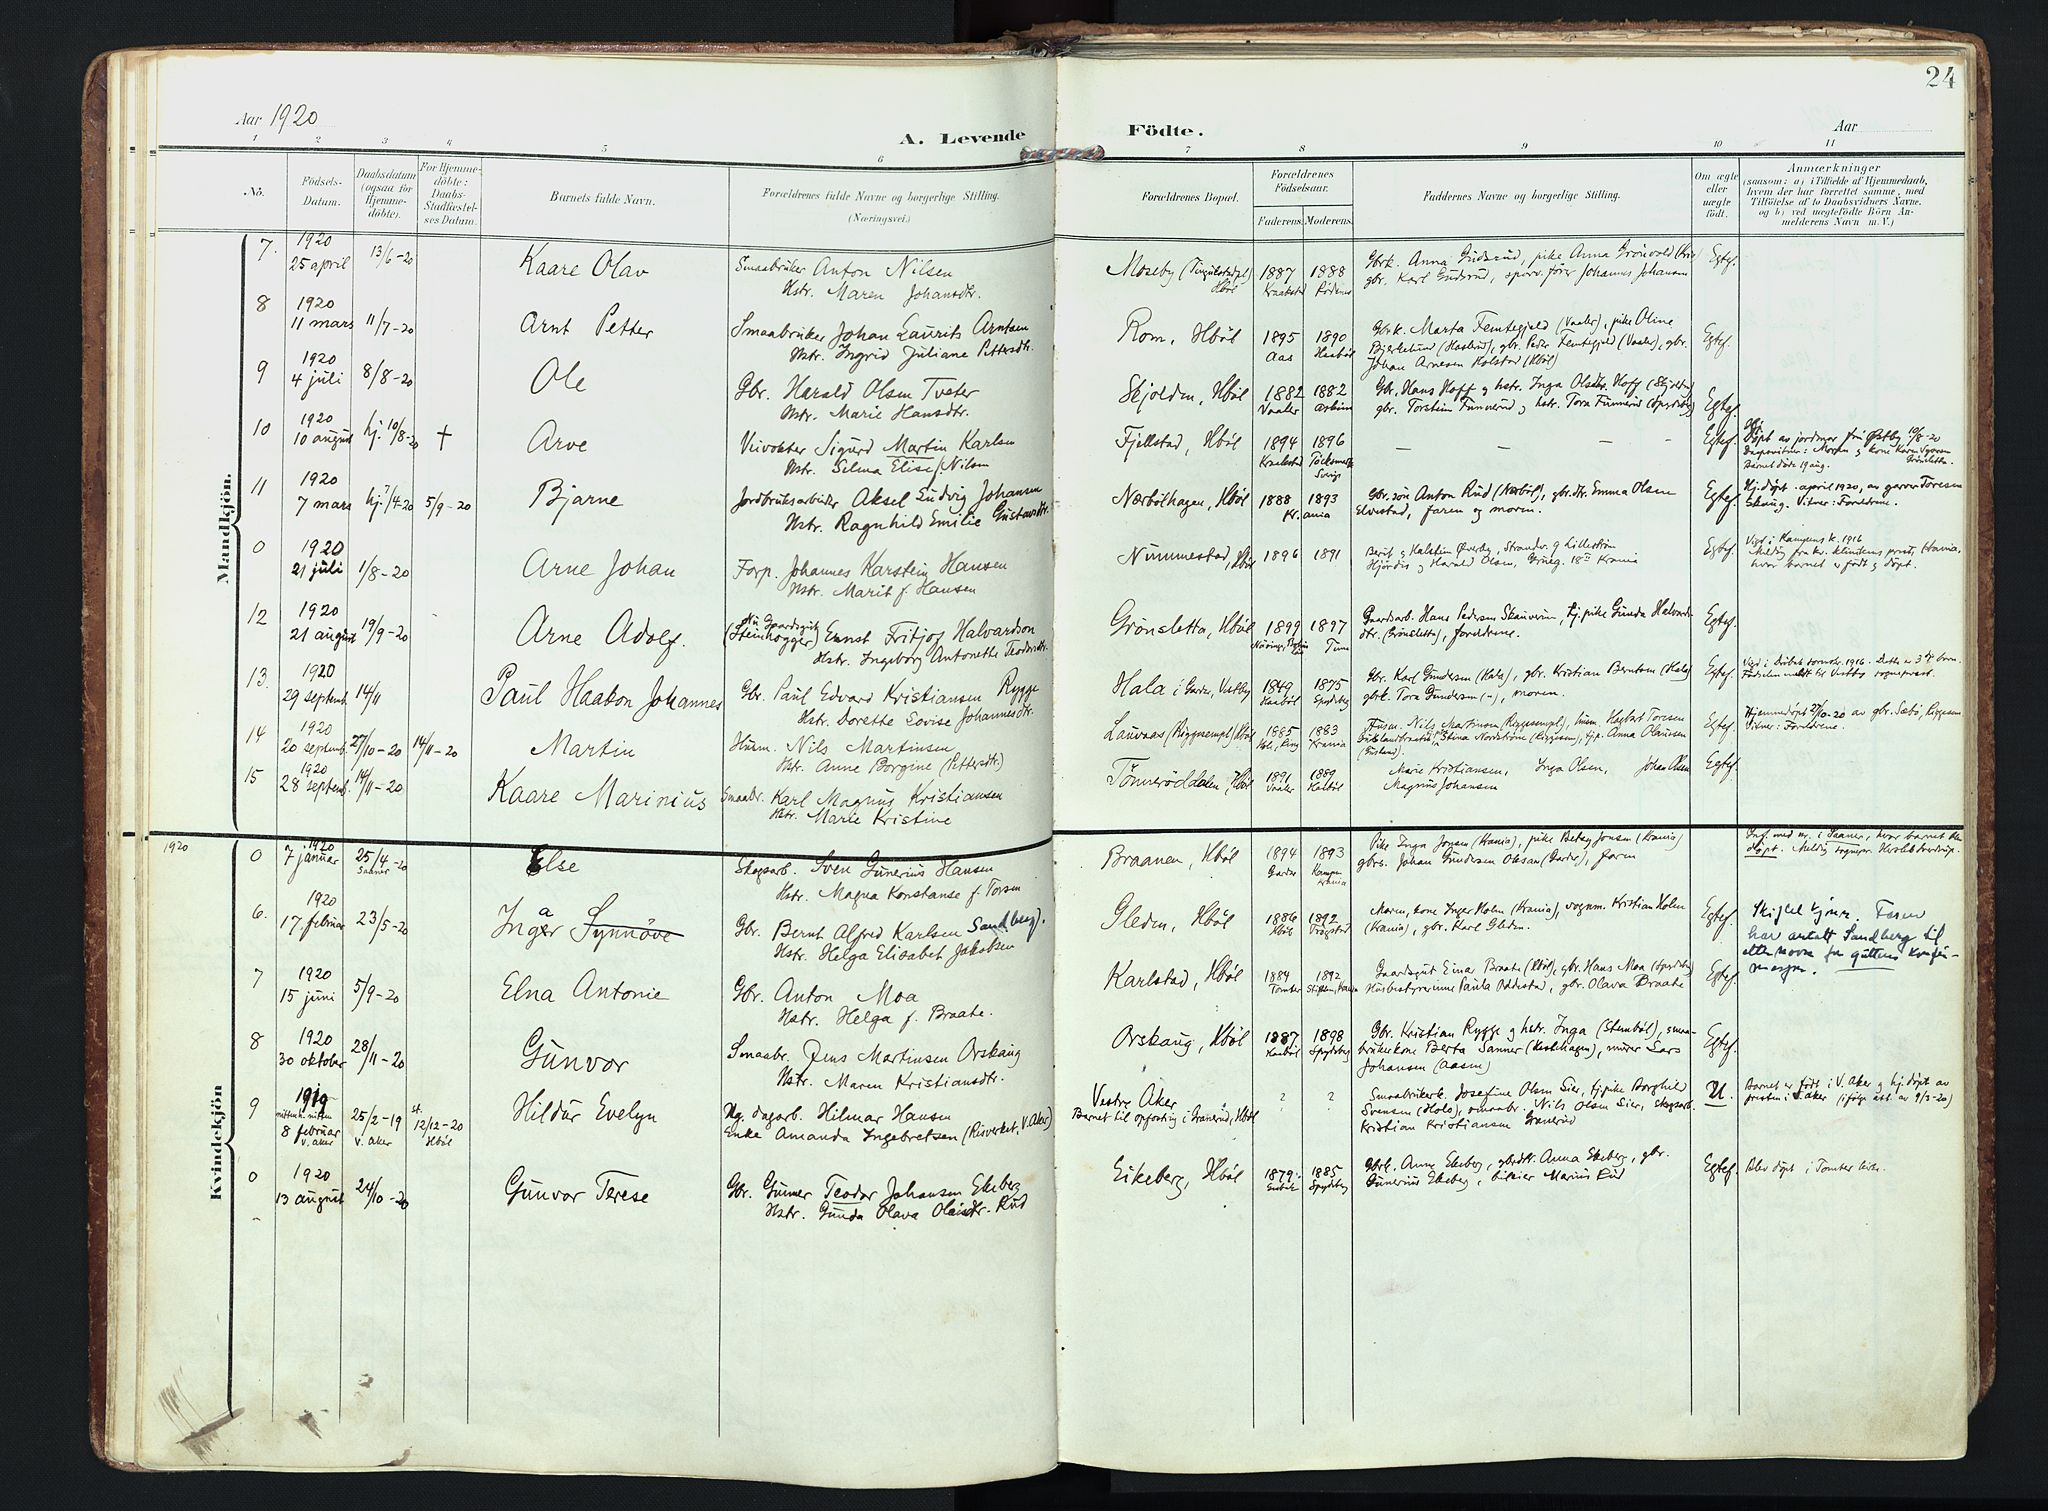 24
Aar 1920
A. Levende Födte.
Aar
1 2 3 4 5 6 7 8 9 10 11
No.
Födsels-Datum.
Daabsdatum (ogsaa for Hjemme-döbte).
For Hjemme-döbte: Daabs-Stadfæstel-ses Datum.
Barnets fulde Navn.
Forældrenes fulde Navne og borgerlige Stilling.
(Næringsvei.)
Forældrenes Bopæl.
Forældrenes Födselsaar.
Faderens. Moderens.
Faddernes Navne og borgerlige Stilling.
Om ægte eller uægte födt.
Anmærkninger
(saasom: a) i Tilfælde af Hjemmedaab, hvem der har forrettet samme, med Tilföielse af to Daabsvidners Navne, og b) ved uægtefödte Börn An-melderens Navn m. V.)
Mandkjön.
7. 1920 25 april 13/6-20 Kaare Olav Smaabruker Anton Nilsen
Hstr. Maren Johansdtr.
Moseby Hböl 1887 Kraakstad 1888 Rödenes Gbrk. Anna Guderud, pike Anna Grönvold
gbr. Karl Guderud, sporv.fører Johannes Johansen Egtef.
8 1920 11 mars 11/7-20 Arnt Petter Smaabruker Johan Laurits Arntsen
Hstr. Ingrid Juliane Pettersdtr.
Rom, Hböl 1895 Aas 1890 Haaböl Gbrk. Marta Femtegjeld (Vaaler), pike Oline
Bjerkelund, gbr. Peder Femtegjeld (Vaaler), gbr.
Johan Arnesen Holstad (Hböl) Egtef.
9 1920 4 juli 8/8-20 Ole Gbr. Harald Olsen Tveter
Hstr. Marie Hansdtr.
Skjolden, Hböl 1882 Vaaler 1882 Gbr. Hans Hoff og hstr. Inga Olsdtr. Hoff
gbr. Torstein Funnerud og hstr. Tora Funnerud (Spydeberg) Egtef.
10 1920 10 august hj. 10/8-20 † Arve Veivokter Sigurd Martin Karlsen
Hstr. Selma Elise Nilsen
Fjellstad, Hböl 1894 Kraakstad 1896 - - - - Egtef. Döpt av jordmor fru Østby 10/8-20
Barnet döde 19 aug.
11 1920 7 mars hj. 7/4-20 5/9-20 Bjarne Jordbruksarbeider Aksel Ludvig Johansen
Hstr. Ragnhild Emilie Gustavsdtr.
Nærbölhagen, Hböl 1888 1893 Kr.ania Gbr.sön Anton Rud, gbr.dtr. Emma Olsen
Elvestad, faren og moren. Egtef. Hj.döpt april 1920, av
Skaug. Vitner: Foreldrene.
0 1920 21 juli 1/8-20 Arne Johan Forp. Johannes Karstein Hansen
Hstr. Marit f. Hansen
Nummestad, Hböl 1896 1891 Berit og Halstein Øverby, Strandv. 9 Lilleström
Hjördis og Harald Olsen, 18 Krania Egtef. Viet i Kampens k. 1916
hvor barnet er födt og döpt.
12 1920 21 august 19/9-20 Arne Adolf. (Steinhogger) Ernst Fritjof Halvardson
Hstr. Ingeborg Antonette
Grönsletta, Hböl 1899 1897 Tune Gaardsarb. Hans Pedersen Skauveien, tj.pike Gunda
(Grönsletta), foreldrene. Egtef.
13. 1920 29 septemb. 14/11 Paul Haakon Johannes Gbr. Paul Edvard Kristiansen Rygge
Hstr. Dorette Lovise Johannesdtr.
Hala i Garder, Vestby 1849 Haaböl 1875 Spydeberg Gbr. Karl Gundersen (Hala), gbr. Kristian Berntsen (Hala)
gbrk. Tora Gundersen (-), moren. Egtef.
14 1920 20 septemb. 27/10-20 14/11-20 Martin Husm. Nils Martinsen
Hstr. Anne Borgine (Pettersdtr.)
Lauvaas Hböl 1885 1883 Krania Nils Martinsen, Hagbart Toresen
Stina Nordström, tj.p. Anna Olaussen Egtef. Hjemmedöpt 27/10-20 av gbr.
Vitner: Foreldrene.
15 1920 28 septemb. 14/11-20 Kaare Marinius Smaabr. Karl Magnus Kristiansen
Hstr. Marie Kristine
Tönneröddalen, Hböl 1891 Vaaler 1889 Haaböl Marie Kristiansen, Inga Olsen, Johan Olsen
Magnus Johansen Egtef.
1920
Kvindekjön
0 1920 7 januar 25/4-20 Saaner Else Skogsarb. Sven Gunerius Hansen
Hstr. Magna Konstanse f. Torsen
Braanen, Hböl 1894 Garder 1893 Kampen Krania Pike Inga Jonsen (Krania), pike Betsy Jonsen (Krania)
gbrs. Johan Gundersen Oksan (Garder), faren Egtef. Inf. med nr. i Saaner, hvor barnet ble
döpt.
6. 1920 17 februar 23/5-20 Inger a Synnöve Gbr. Bernt Alfred Karlsen Sandberg).
Hstr. Helga Elisabet Jakobsen
Gleden, Hböl 1886 Hböl 1892 Trögstad Moren, kone Inger Holm (Krania), vognm. Kristian Holm
(Krania), gbr. Karl Gleden. Egtef. Skiftet kjønn. Faren
har antatt Sandberg til
etternavn før guttens konfir-
masjon.
7 1920 15 juni 5/9-20 Elna Antonie Gbr. Anton Moa
Hstr. Helga f. Braate.
Karlstad, Hböl 1884 Tomter 1892 Gaardsgut Einar Braate (Hböl), gbr. Hans Moa (Spydeberg)
Husbestyrerinne Paula Oddestad, gbr. Olava Braate Egtef.
8 1920 30 oktober 28/11-20 Gunvor Smaabr. Jens Martinsen Orskaug
Hstr. Maren Kristiansdtr.
Orskaug, Hböl 1887 Haaböl 1898 Spydeberg Gbr. Kristian Rygge og hstr. Inga (Stenböl), smaa-
brukerkone Berta Sanner, murer Lars
Johansen (Aasen) Egtef.
9 1919 nitten h. nitten 8 februar V. Aker 25/2-19 V. Aker st. 12/12-20 Hböl Hildur Evelyn Ug. dagarb. Hilmar Hansen
Enke Amanda Ingebretsen (Risverket, V. Aker)
Vestre Aker
Barnet til opfostring i Granerud, Hböl ? ? Smaabrukerk. Josefine Olsen Sier, tj.pike Borghild
Svensen (Holo), smaabr. Nils Olsen Sier, skogsarb.
Kristian Kristiansen Granerud U. Barnet er födt i V. Aker og hj.döpt av
presten i V. Aker (ifölge att. av 9/3-20)
0 1920 13 august 24/10-20 Gunvor Terese Gbr. Gunner Teodor Johansen Ekeberg
Hstr. Gunda Olava Olaisdtr. Rud
Eikeberg, Hböl 1879 1885 Spydeberg Gbrk. Anne Ekeberg, gbrdtr. Anna Ekeberg, gbr.
Gunerius Ekeberg, Marius Rud Egtef. Blev döpt i Tomter kirke.